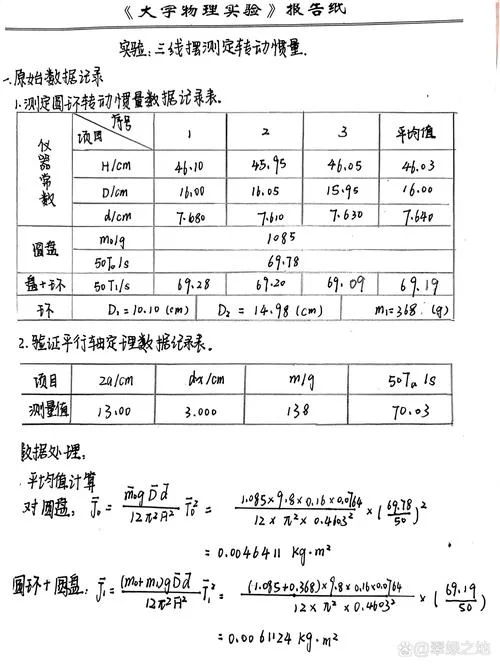 《大学物理实验》报告纸
实验:三线摆测定转动惯量.
一.原始数据记录
1.测定圆环转动惯量数据记录表.
仪器常数 项目 序号 1 2 3 平均值
H/cm 46.10 45.95 46.05 46.03
D/cm 16.00 16.05 15.95 16.00
d/cm 7.680 7.610 7.630 7.640
圆盘 m₀/g 1085
50T₀/s 69.78
盘+环 50T₁/s 69.28 69.20 69.09 69.19
环 D₁=10.10 (cm) D₂=14.98 (cm) m₁=368 (g)
2.验证平行轴定理数据记录表。
项目 2a/cm dx/cm m/g 50Ta/s
测量值 13.00 3.000 138 70.03
数据处理:
平均值计算
对圆盘: J̄₀= m̄₀gD̄d̄/12π²H̄² T̄₀² = 1.085×9.8×0.16×0.0764/12×π²×0.4603² ×(69.78/50)²
=0.0046411 kg·m²
圆环+圆盘: J̄₁= (m₀+m₁)gD̄d̄/12π²H̄² T̄₁² = (1.085+0.368)×9.8×0.16×0.0764/12×π²×0.4603² ×(69.19/50)
=0.0061124 kg·m²
@翠绿之地